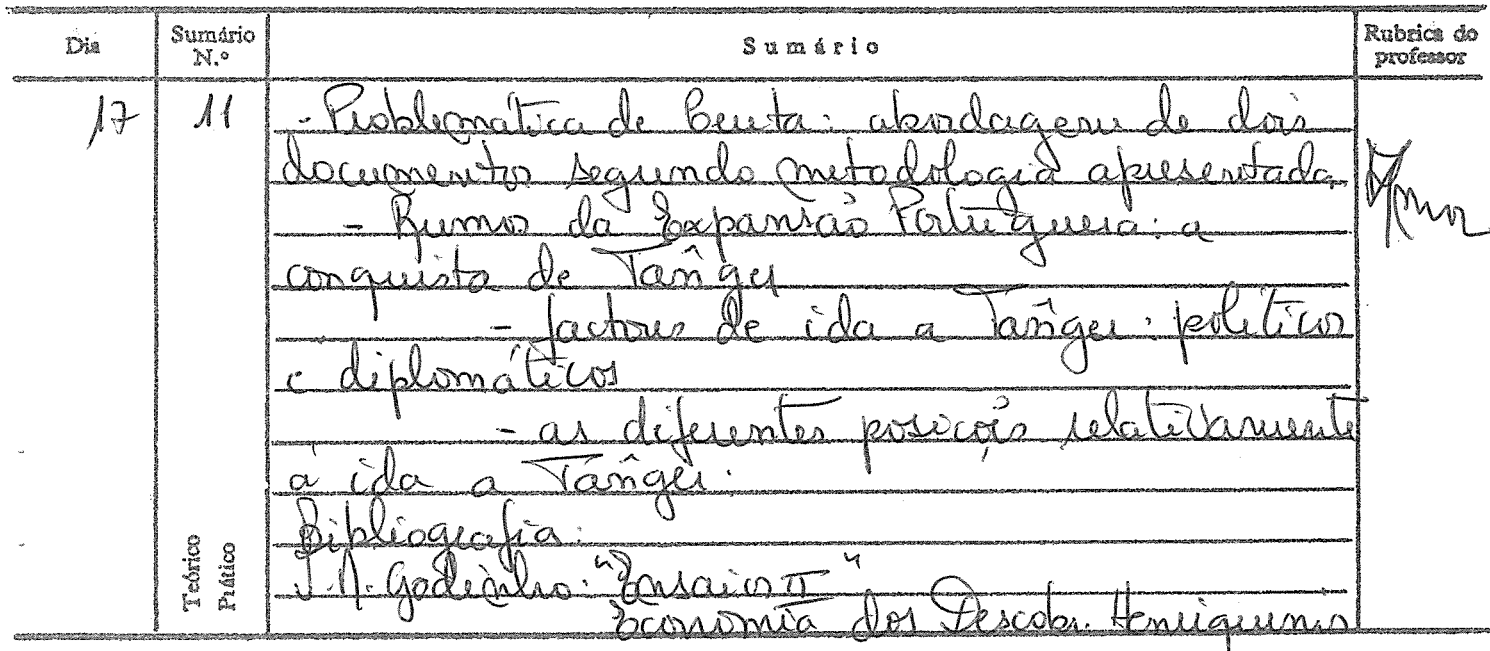 Dia Sumário N.º Sumário Rubrica do professor
17 11 - Problemática de Ceuta: abordagem de dois
documentos segundo metodologia apresentada
- Rumos da Expansão Portuguesa: a
conquista de Tânger
- factores de ida a Tânger: políticos
e diplomáticos
- as diferentes posições relativamente
à ida a Tânger.
Bibliografia:
V. M. Godinho: "Ensaios II"
Economia dos Descobr. Henriquinos
Teórico
Prático